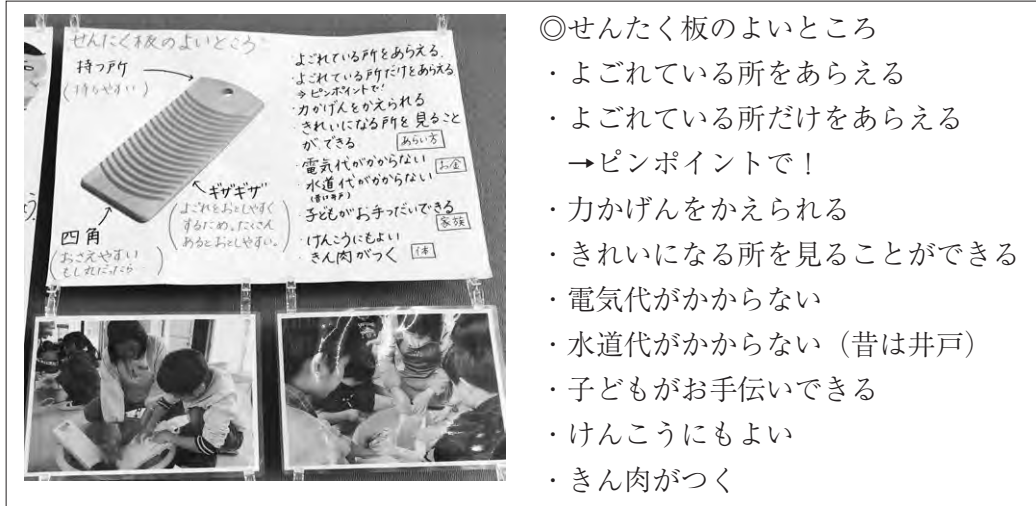 せんたく板のよいところ
持つ所
(持ちやすい)
四角
(おさえやすい
ギザギザ
(よごれをおとしやすく
するため。たくさん
あるとおとしやすい。)
よごれている所をあらえる。
よごれている所だけをあらえる
→ピンポイントで!
・力かげんをかえられる
・きれいになる所を見ること
ができる
あらい方
・電気代がかからない
お金
・水道代がかからない
(昔は井戸)
・子どもがお手つだいできる
家族
・けんこうにもよい
・きん肉がつく
体
◎せんたく板のよいところ
・よごれている所をあらえる
・よごれている所だけをあらえる
→ピンポイントで！
・力かげんをかえられる
・きれいになる所を見ることができる
・電気代がかからない
・水道代がかからない（昔は井戸）
・子どもがお手伝いできる
・けんこうにもよい
・きん肉がつく